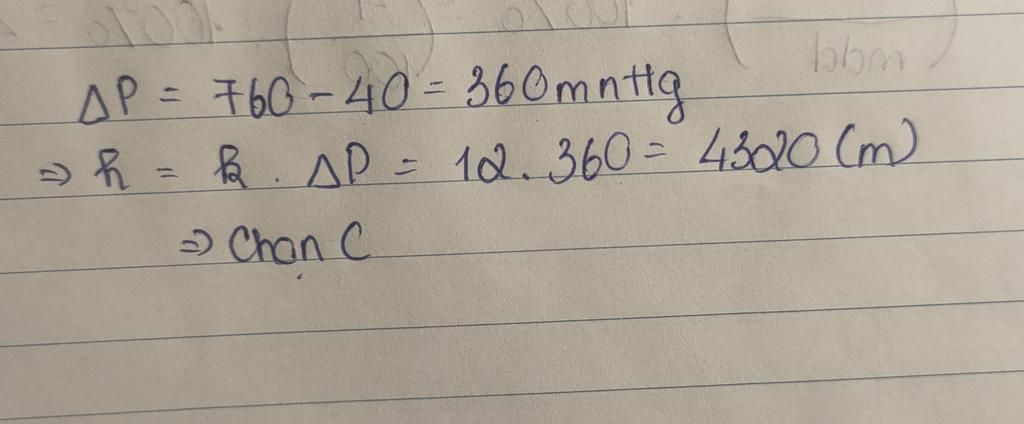 ΔP = 760 - 40 = 360mnHg
⇒ h = k . ΔP = 12 . 360 = 4320 (m)
⇒ Chọn C